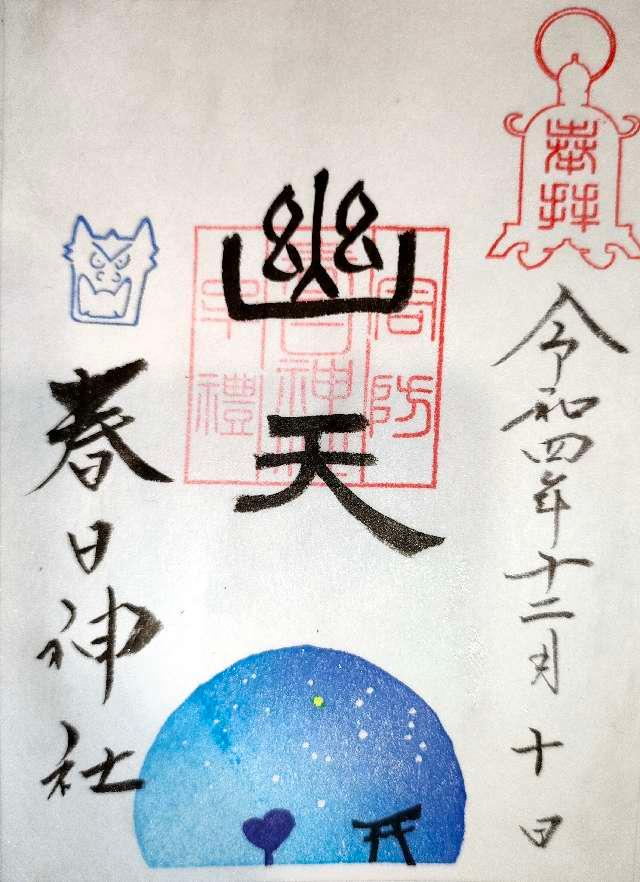 奉拝
令和四年十二月十日
幽天
周防
春日神社
牟禮
春日神社